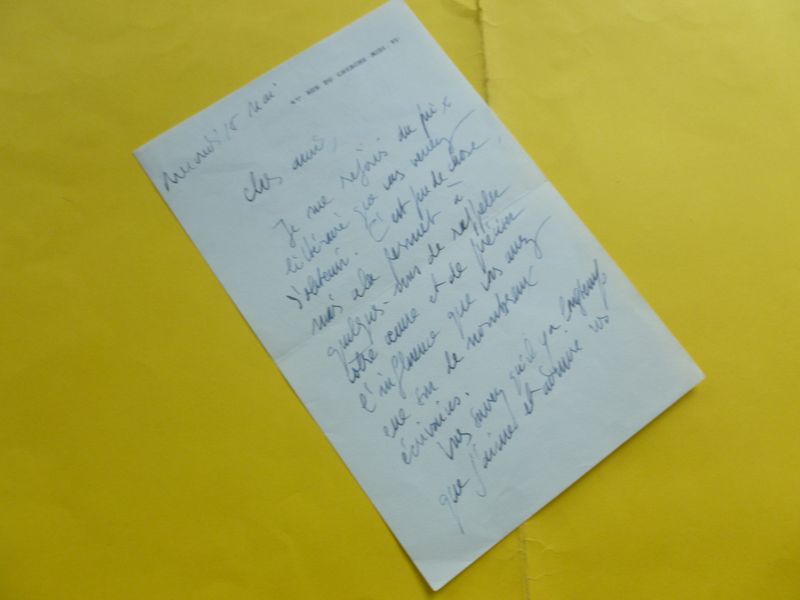 RUE DU CHERCHE MIDI. VI
mercredi 15 Mai
cher ami,
Je me réjouis du prix
littéraire que vous venez
d'obtenir. C'est peu de chose,
mais cela permet à
quelques-uns de rappeler
votre œuvre et de préciser
l'influence que vous avez
eue sur de nombreux
écrivains.
Vous savez qu'il y a longtemps
que j'aime et admire vos